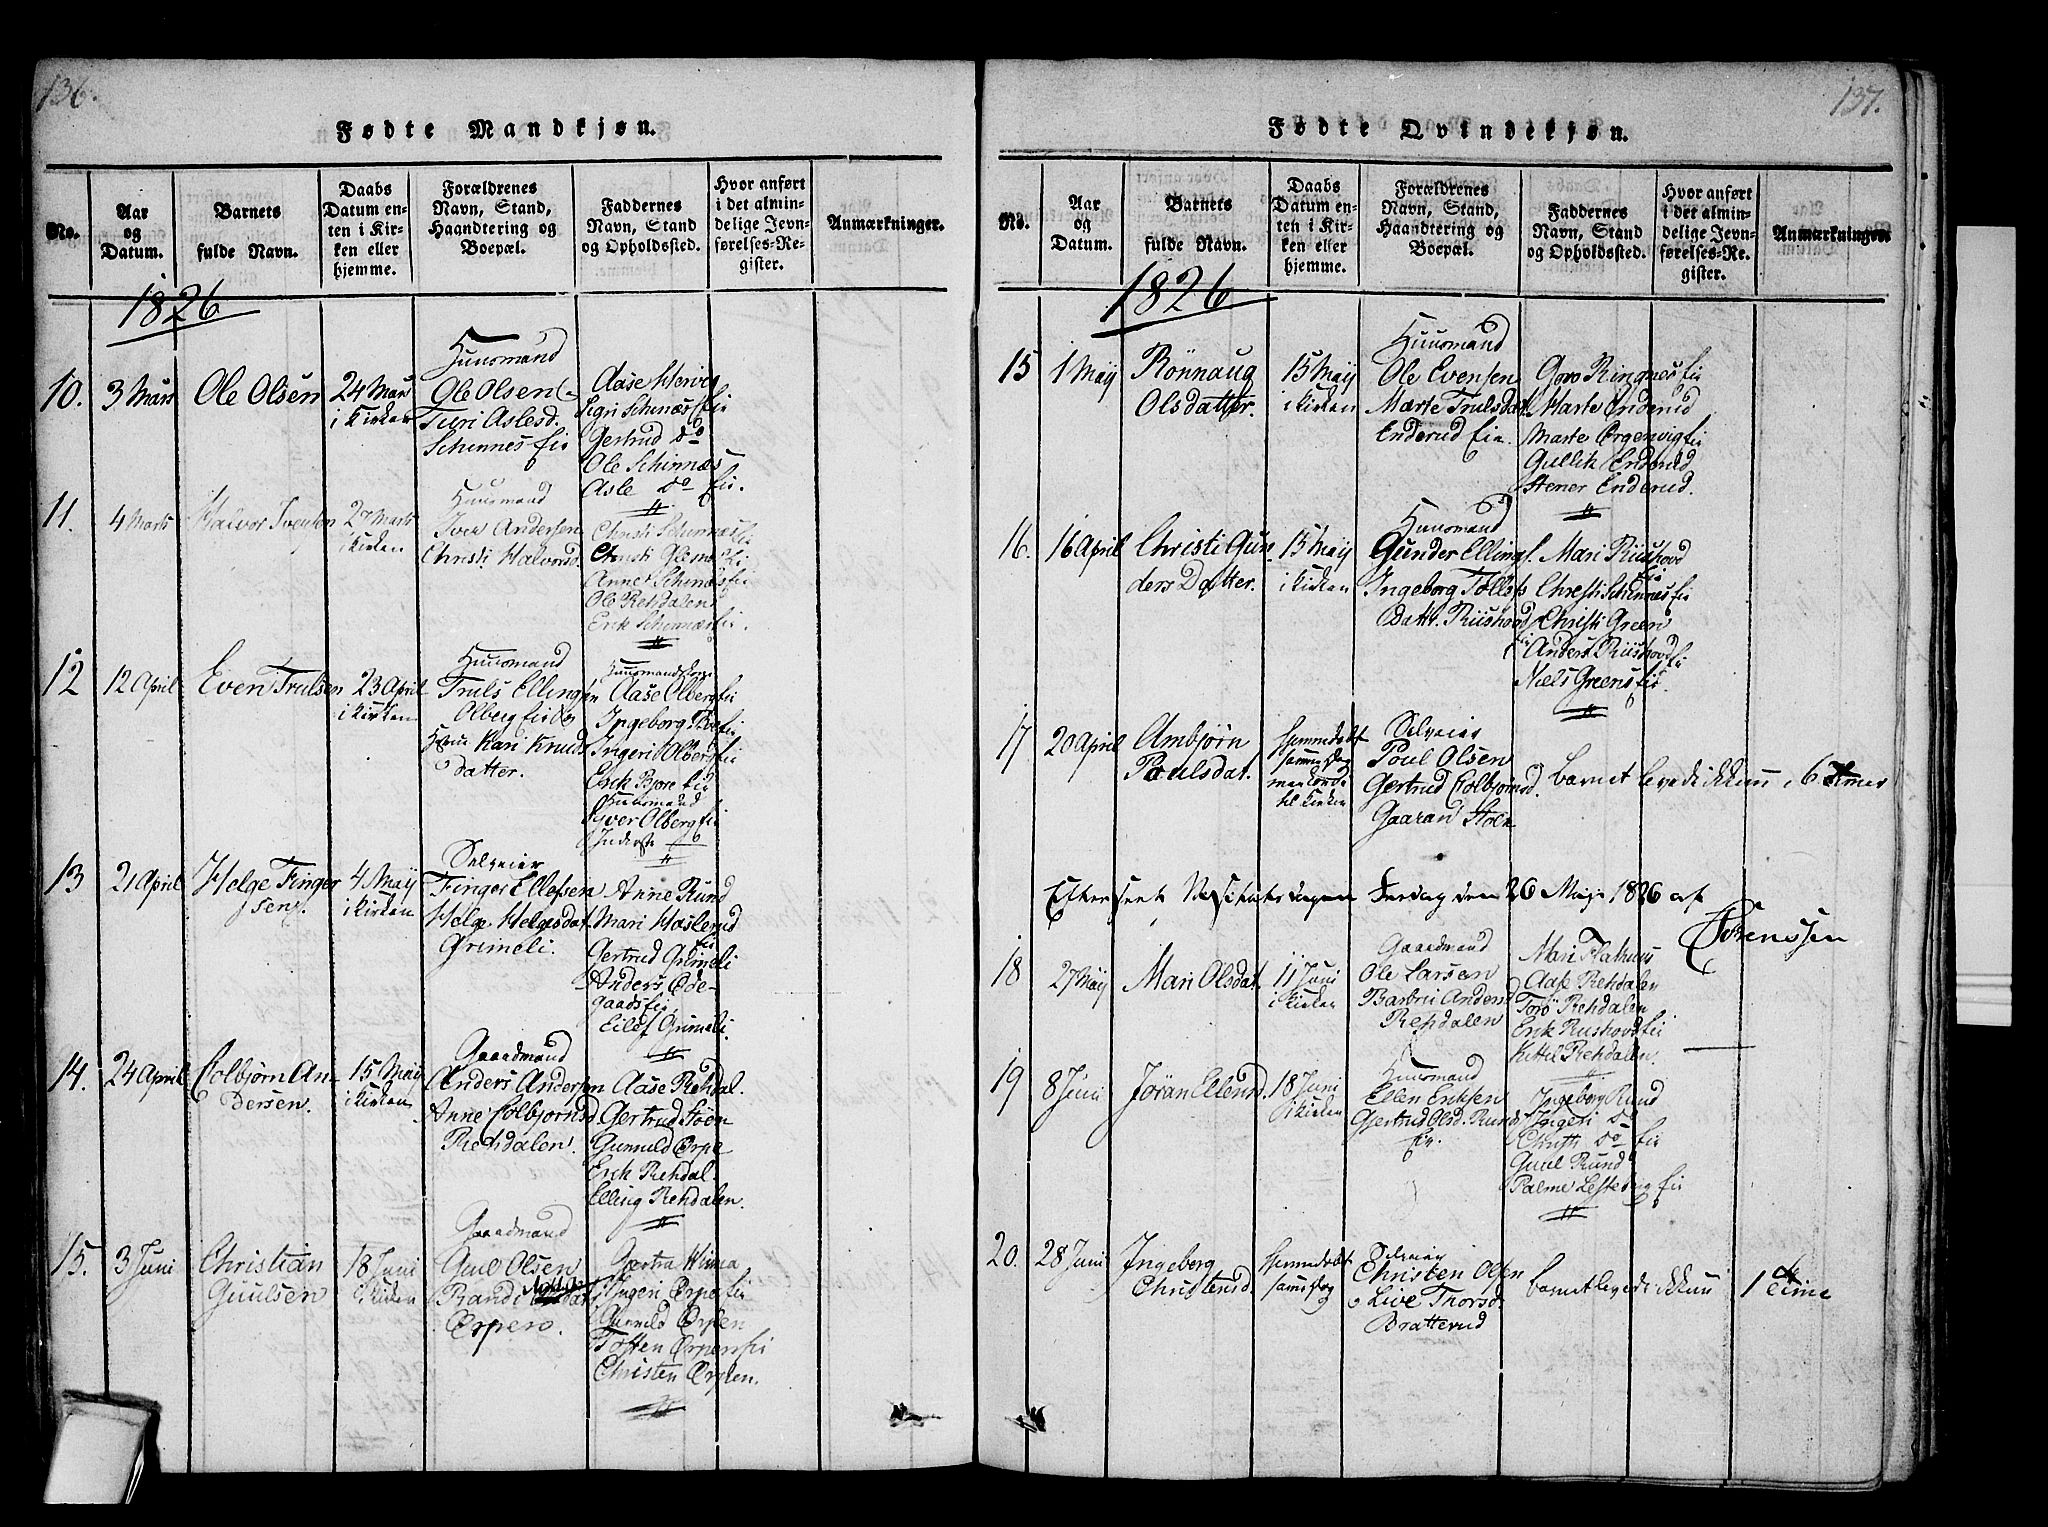 136.
Fødte Mandkjøn.
No.
Aar
og
Datum.
Barnets
fulde Navn.
Daabs
Datum en-
ten i Kir-
ken eller
hjemme.
Forældrenes
Navn, Stand,
Haandtering og
Boepæl.
Faddernes
Navn, Stand
og Opholdssted.
Hvor anført
i det almin-
delige Jevn-
førelses-Re-
gister.
Anmærkninger.
1826
10.
3 Mars
Ole Olsen
24 Mars
i Kirken
Huusmand
Ole Olsen
Turi Aslesd.
Schinnes Eie
Aase Hervig
Sigri Schinæs Eie
Gertrud do
Ole Schinnæs
Asle do Eie.
11.
4 Marts
Halvor Iversen
27 Marts
i Kirken
Huusmand
Iver Andersen
Christi Halvorsd.
Christi Schinnæs Eie
Christi Glesnæs Eie
Anne Schinæs Eie
Ole Rehdalen
Erik Schinnæs Eie.
12
12 April
Even Trulsen
23 April
i Kirken
Huusmand
Truls Ellingsen
Olberg Eie og
Kari Knuds
datter.
Aase Olberg Eie
Ingeborg Eie
Ingeri Olberg Eie
Erik Bjore Eie
Huusmand
Iver Olberg Eie
Inderste
13
21 April
Helge Finger
sen.
4 Maij
i Kirken
Selveier
Finger Ellefsen
Helge Helgesdat.
Grimeli.
Anne Rund
Mari Haslerud
Eie
Gertrud Grimeli
Anders Øde-
gaards Eie
Eilef Grimeli.
14.
24 April
Colbjørn An-
dersen.
15 Maij
i Kirken
Gaardmand
Anders Andersen
Anne Colbjørnsd.
Rehdalen.
Aase Rehdal.
Gertrud Stöen
Gunnild Ørpe
Erik Rehdal
Elling Rehdalen.
15.
3 Juni
Christian
Guulsen
18 Juni
i Kirken
Gaardmand
Guul Olsen
Randi
Ørpen.
Gertru
Ingeri Ørpe Eie
Gunnild Ørpen
Tosten Ørpens Eie
Christen Ørpen.
137.
Fødte Qvindekjøn.
No.
Aar
og
Datum.
Barnets
fulde Navn.
Daabs
Datum en-
ten i Kir-
ken eller
hjemme.
Forældrenes
Navn, Stand,
Haandtering og
Boepæl.
Faddernes
Navn, Stand
og Opholdssted.
Hvor anført
i det almin-
delige Jevn-
førelses-Re-
gister.
Anmærkninger.
1826
15
1 Maij
Rönnaug
Olsdatter.
15 Maij
i Kirken
Huusmand
Ole Evensen
Marte Trulsdat.
Enderud Eie.
Goro Ringnes Eie
Marte Enderud
Marte Ørgenvig Eie
Gullik Enderud
Stener Enderud.
16.
16 April
Christi Gun
ders Datter.
15 Maij
i Kirken
Huusmand
Gunder Ellings.
Ingeborg Tollefs
Datt. Riishovd
Eie
Mari Riishovd
Eie
Christi Schinnes Eie
Christi Green
Anders Riishovd Eie
Niels Greens Eie.
17
20 April
Ambjørn
Poulsdat.
hjemmedøbt
samme Dag
til Kirken
Selveier
Poul Olsen
Gertrud Colbjørnsd.
Gaaran Stoen
barnet levede ikkun i 6 timer
Efterseet Visitatsdagen Fredag den 26 Maji 1826 af
Sørenssen
18
27 Maij
Mari Olsdat.
11 Juni
i Kirken
Gaardmand
Ole Larsen
Barbru Andersd
Rehdalen
Mari Flathuus
Aase Rehdalen
Torö Rehdalen
Erik Rushovd Eie
Kittil Rehdalen.
19
8 Juni
Jöran Ellensd.
18 Juni
i Kirken
Huusmand
Ellen Eriksen
Gjertrud Olsd. Runds
Eie.
Ingeborg Rund
Ingeri do
Christi do Eie
Guul Rund
Palme Eie
20.
28 Juni
Ingeborg
Christensd.
hjemmedøbt
samme Dag
Selveier
Christen Olsen
Live Thorsd.
Bratterud
barnet levede ikkun 1 time